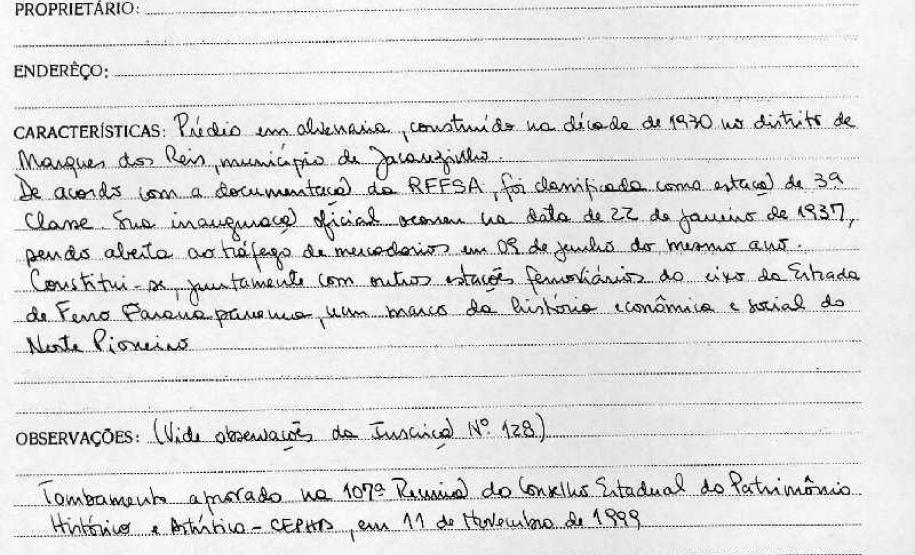 PROPRIETÁRIO:
ENDERÊÇO:
CARACTERÍSTICAS: Prédio em alvenaria, construído na década de 1930 no distrito de
Marques dos Reis, município de Jacarezinho.
De acordo com a documentação da RFFSA, foi classificada como estação de 3ª
Classe. Sua inauguração oficial ocorreu na data de 22 de janeiro de 1937,
sendo aberta ao tráfego de mercadorias em 09 de junho do mesmo ano.
Constitui-se, juntamente com outras estações ferroviárias do eixo da Estrada
de Ferro Paranapanema, num marco da história econômica e social do
Norte Pioneiro
OBSERVAÇÕES: (Vide observações da Inscrição Nº 128)
Tombamento aprovado na 107ª Reunião do Conselho Estadual do Patrimônio
Histórico e Artístico - CEPHA, em 11 de Novembro de 1999